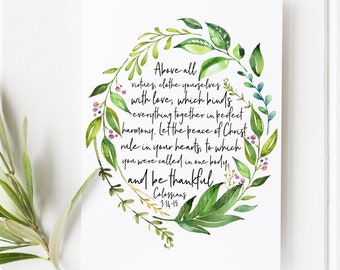 Above all
virtues, clothe yourselves
with love, which binds
everything together in perfect
harmony. Let the peace of Christ
rule in your hearts, to which
you were called in one body,
and be thankful.
Colossians
3:14-15